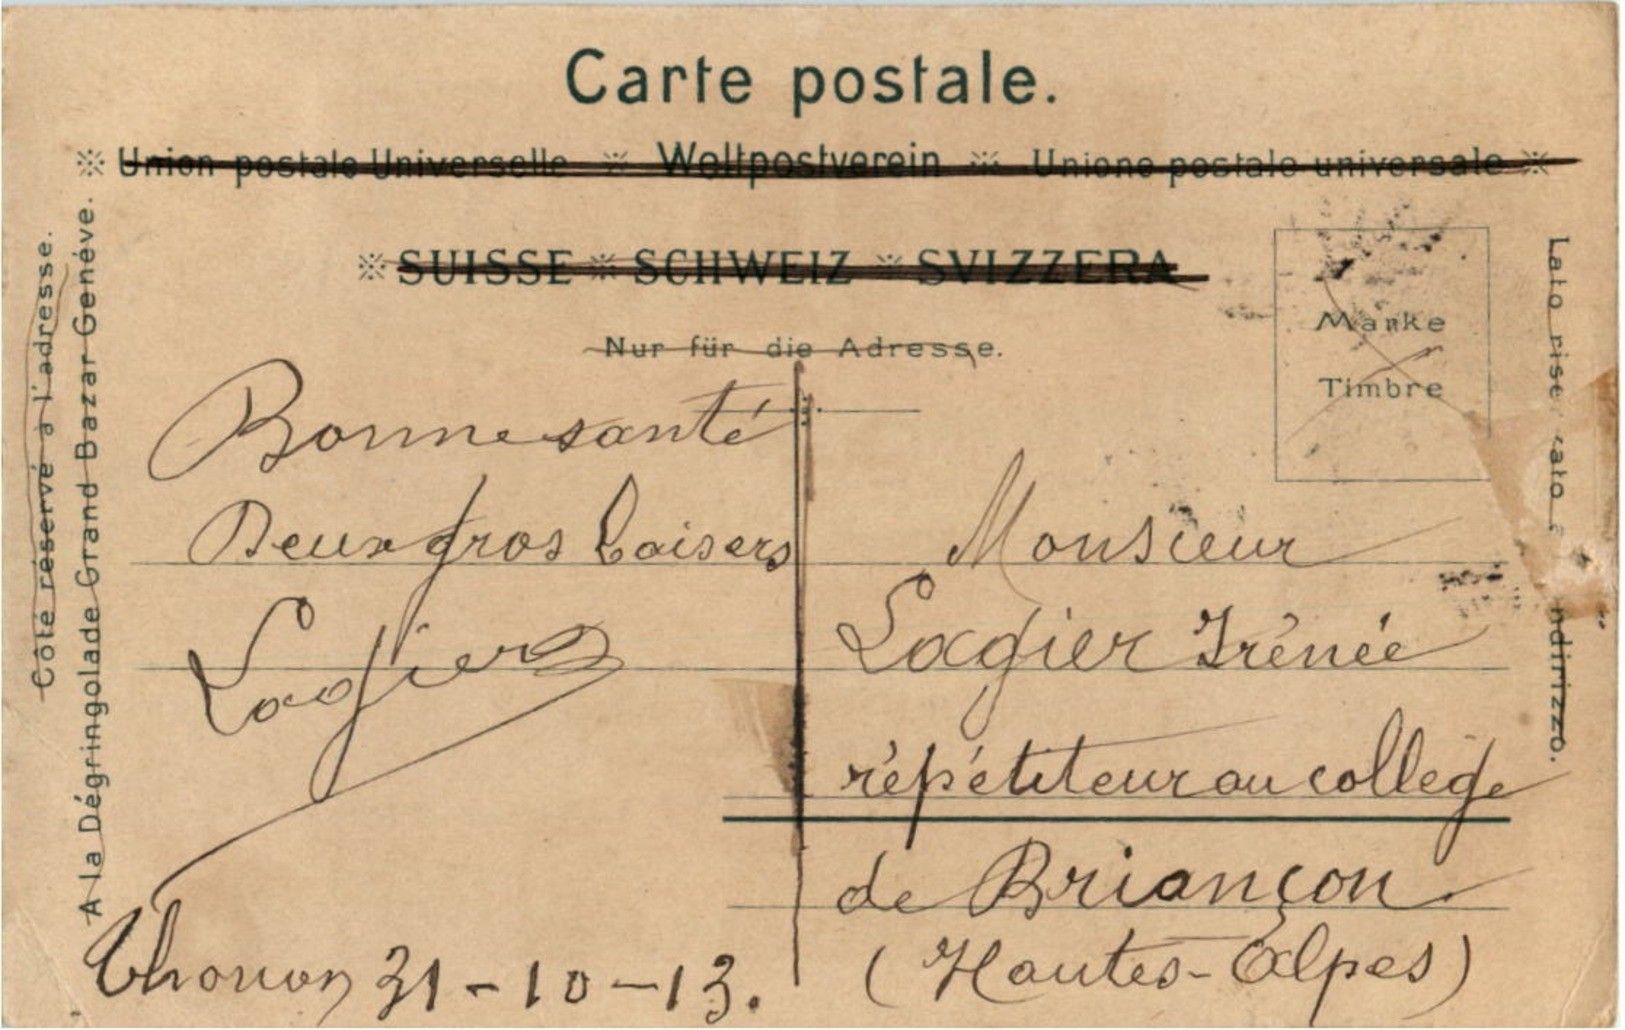 Carte postale.
※ Union postale Universelle ※ Weltpostverein ※ Unione postale universale ※
※ SUISSE ※ SCHWEIZ ※ SVIZZERA
Nur für die Adresse.
Côté réservé à l'adresse.
A la Dégringolade Grand Bazar Genéve.
Marke
Timbre
Lato rise
ndirizzo.
Bonne santé
Deux gros baisers
Lagier
Thonon 31-10-13.
Monsieur
Lagier Irénée
répétiteur au collège
de Briançon
(Hautes-Alpes)